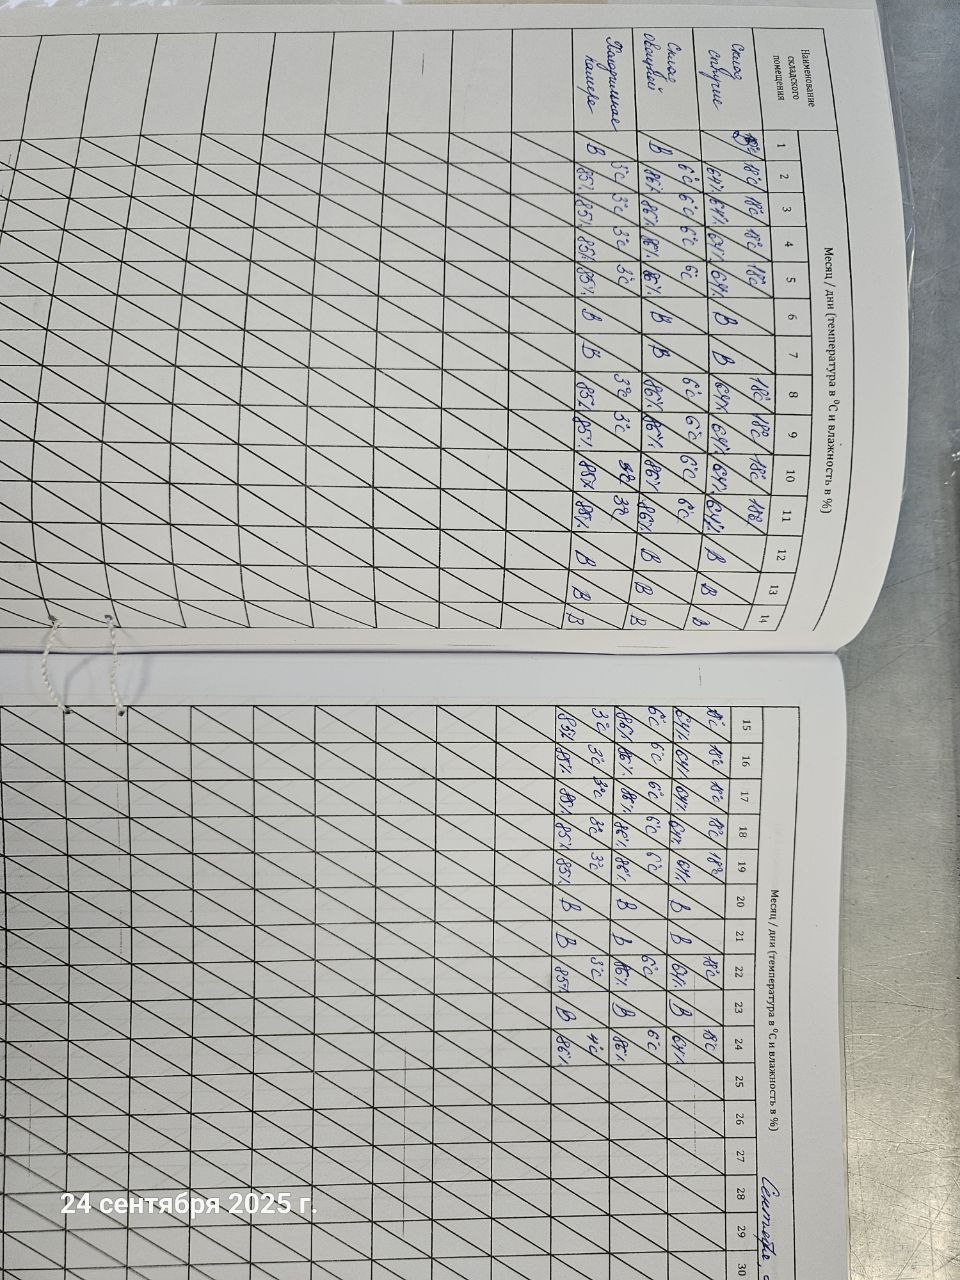 Наименование складского помещения
Месяц / дни (температура в ⁰С и влажность в %)
1 2 3 4 5 6 7 8 9 10 11 12 13 14
Склад сыпучие
18°C 18°C 18°C 18°C 18°C 18°C 18°C 18°C
В 64% 64% 64% 64% В В 64% 64% 64% 64% В В В
Склад овощной
6°C 6°C 6°C 6°C 6°C 6°C 6°C 6°C
В 86% 86% 86% 86% В В 86% 86% 86% 86% В В В
Холодильное камера
3°C 3°C 3°C 3°C 3°C 3°C 3°C
В 85% 85% 85% 85% В В 85% 85% 85% 85% В В В
Сентябрь
Месяц / дни (температура в ⁰С и влажность в %)
15 16 17 18 19 20 21 22 23 24 25 26 27 28 29 30
18°C 18°C 18°C 18°C 18°C 18°C 18°C
64% 64% 64% 64% 64% В В 64% В 64%
6°C 6°C 6°C 6°C 6°C 6°C 6°C
86% 86% 86% 86% 86% В В 86% В 86%
3°C 3°C 3°C 3°C 3°C 3°C 4°C
85% 85% 85% 85% 85% В В 85% В 86%
24 сентября 2025 г.